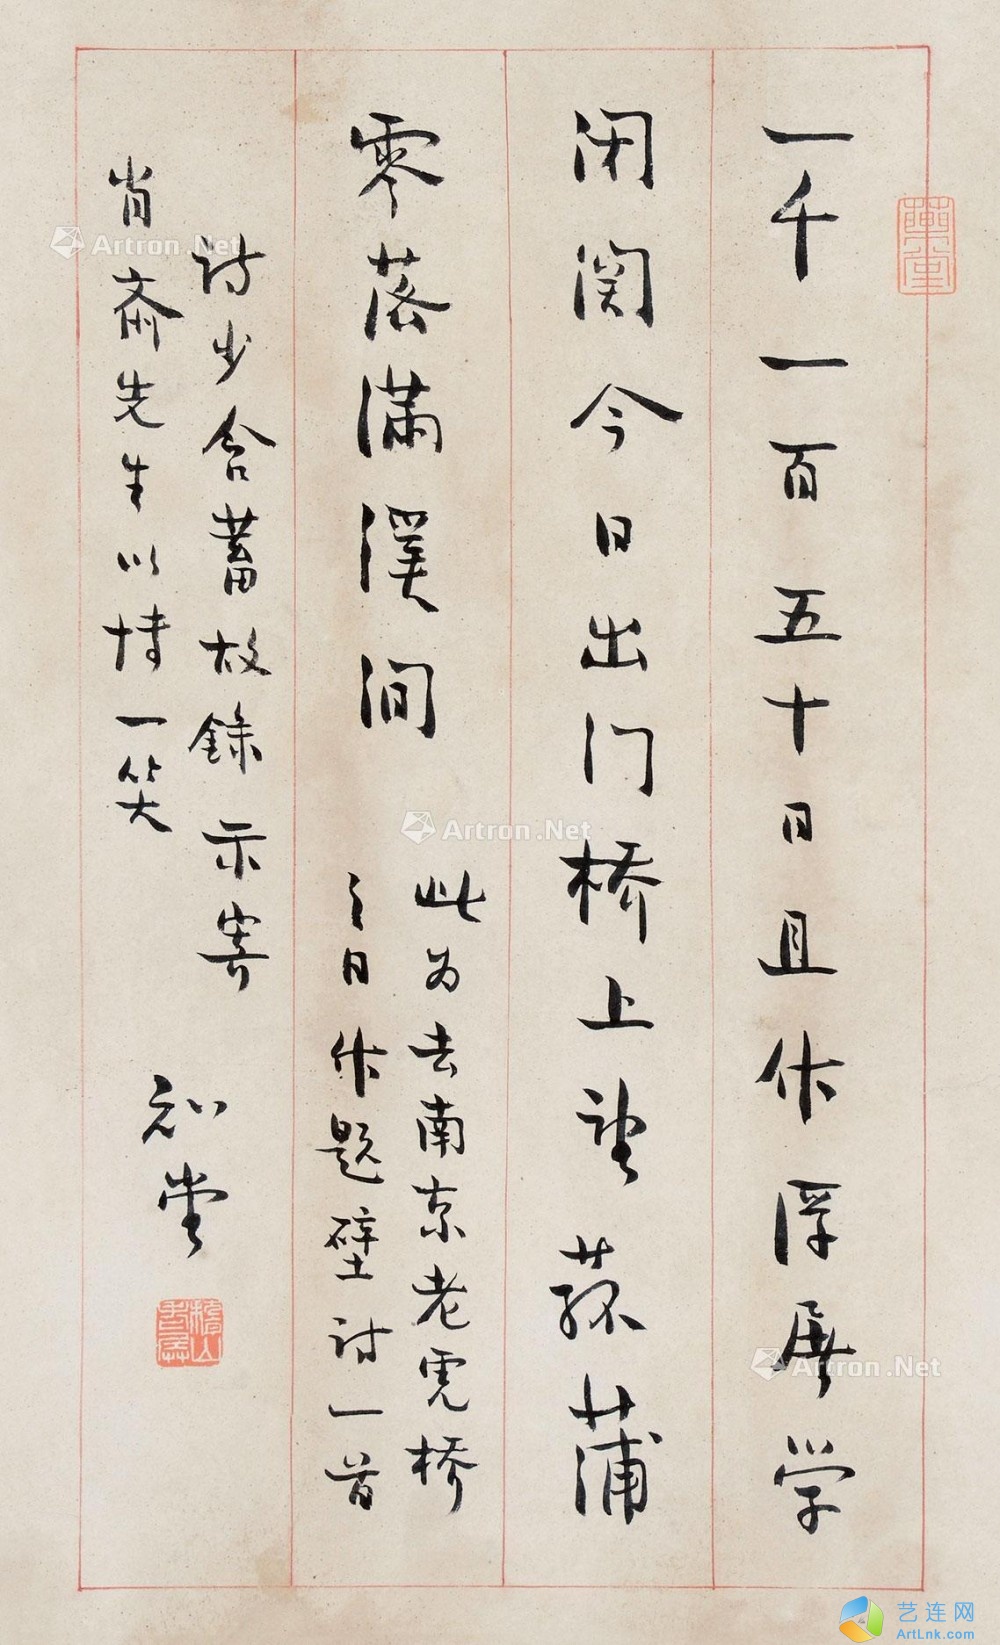 藥堂
一千一百五十日且作浮屠学
閉関今日出门橋上望菰蒲
零落滿溪间
此为去南京老虎橋
之日作題壁诗一首
诗少含蓄故錄示寄
肖斎先生以博一笑
知堂
Artron.Net
Artron.Net
Artron.Net
艺连网
ArtLnk.com